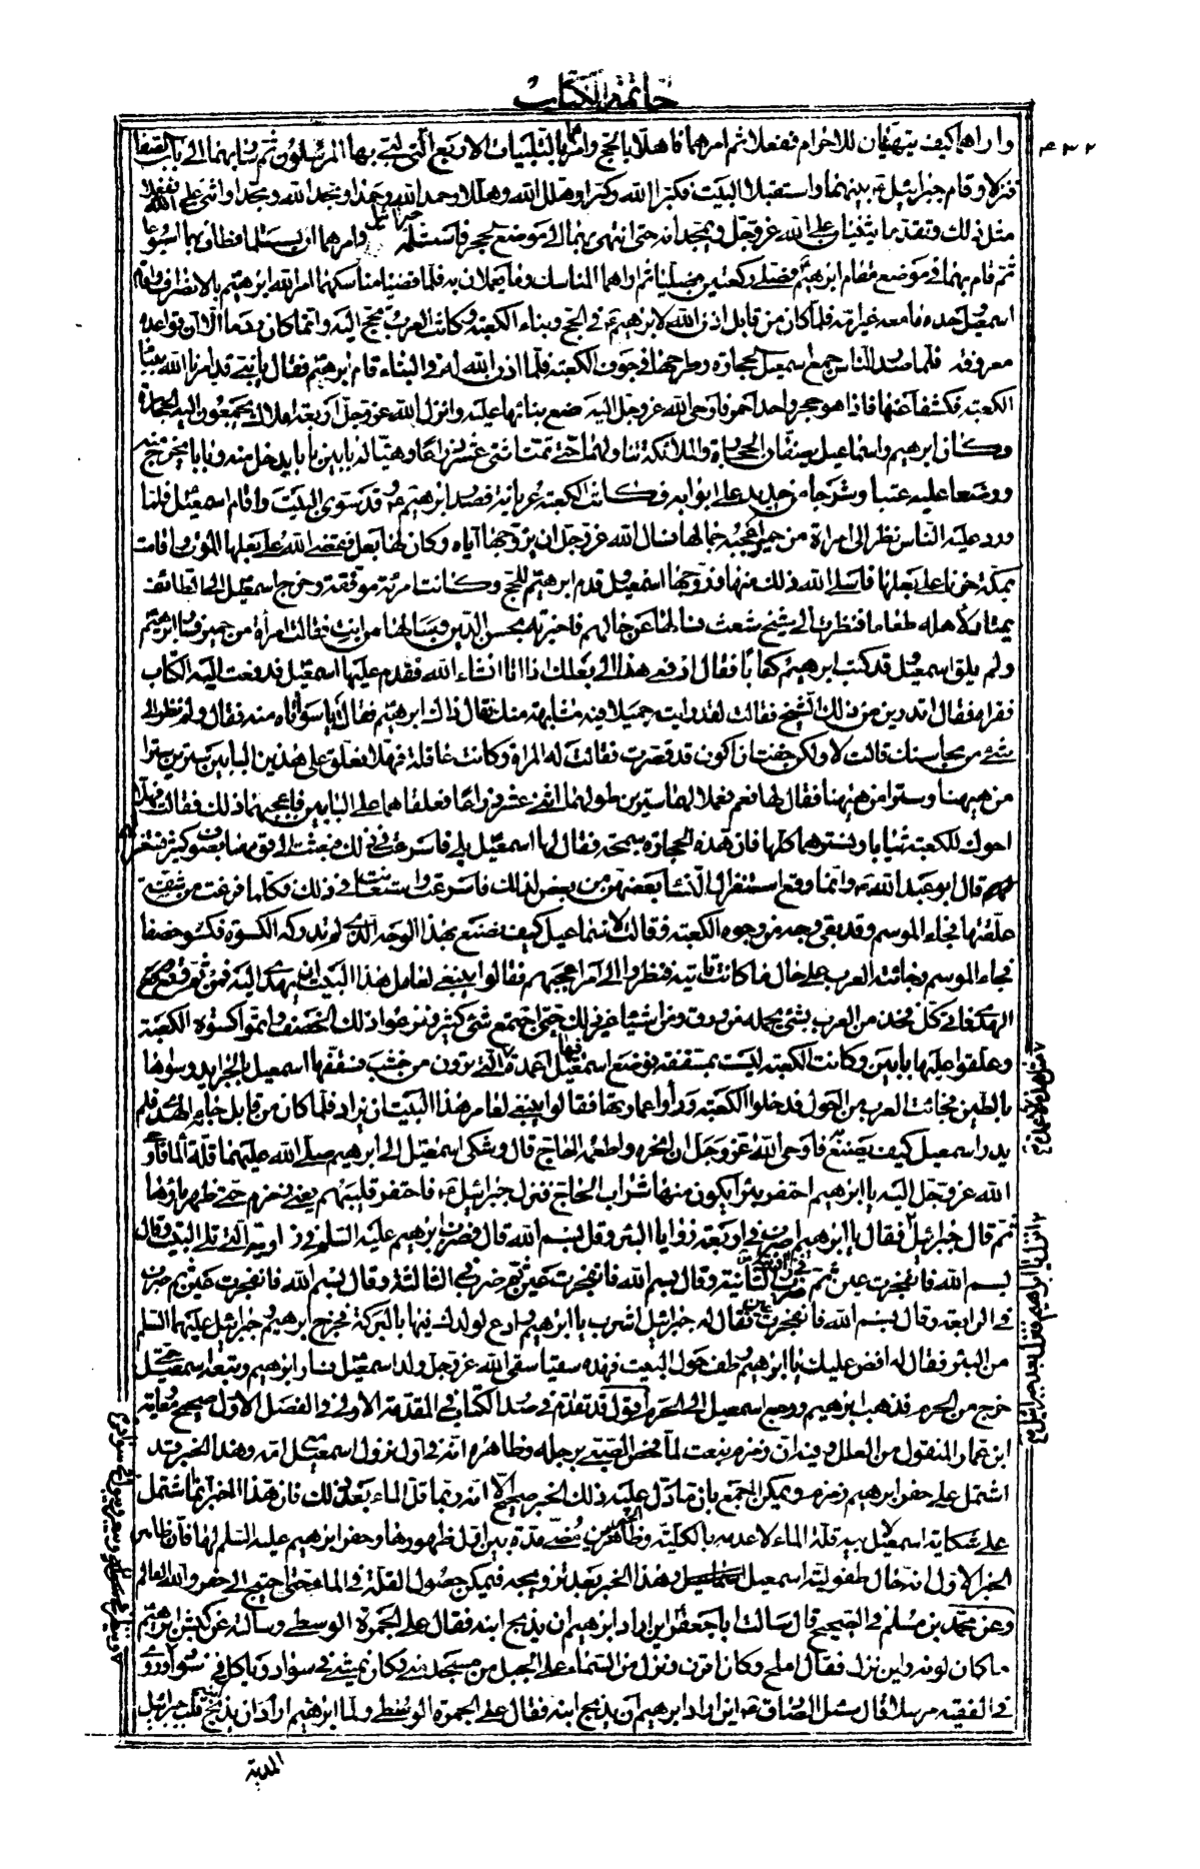 خاتمة الكتاب
٤٣٢
واراهما كيف يتهيّئان للاحرام ففعلا ثم امرهما فاهلا بالحج وامرهما بالتلبيات الاربع التى لبّى بها المرسلون ثم سار بهما الى باب الصفا
فنزلا وقام جبرائيل بينهما واستقبلا البيت فكبر الله وكبرا وهلل الله وهللا وحمد الله وحمدا ومجد الله ومجدا واثنى عليه ففعلا
مثل ذلك وتقدم وتقدما يثنيان على الله عز وجل ويمجدانه حتى انتهى بهما الى موضع الحجر فاستلم جبرائيل وامرهما ان يستلما فطاف بهما اسبوعا
ثم قام بهما فى موضع مقام ابرهيم فصلى ركعتين وصليا ثم اراهما المناسك وما يعملان به فلما قضيا مناسكهما امر الله ابرهيم بالانصراف واقام
اسمعيل وحده ما معه غير امه فلما كان من قابل اذن الله لابرهيم فى الحج وبناء الكعبة وكانت العرب تحج اليه وانما كان ردما الا ان قواعده
معروفة فلما صدر الناس جمع اسمعيل الحجارة وطرحها فى جوف الكعبة فلما اذن الله له فى البناء قام ابرهيم فقال يا بنى قد امرنا الله ببناء
الكعبة فكشفا عنها فاذا هو حجر واحد احمر فاوحى الله عز وجل اليه ضع بنائها عليه وانزل الله عز وجل اربعة املاك يجمعون اليه الحجارة
وكان ابرهيم واسماعيل يضعان الحجارة والملائكة تناولهما حتى تمت اثنى عشر ذراعا وهيئا له بابين بابا يدخل منه وبابا يخرج منه
ووضعا عليه عتبا وشرجا من حديد على ابوابه وكانت الكعبة عريانة فصدر ابرهيم وقد سوى البيت واقام اسمعيل فلما
ورد عليه الناس نظر الى امراة من حمير اعجبه جمالها فسال الله عز وجل ان يزوجها اياه وكان لها بعل فقضى الله على بعلها الموت واقامت
بمكة حزنا على بعلها فاسلى الله ذلك عنها وزوجها اسمعيل وقدم ابرهيم للحج وكانت امرئة موفقة وخرج اسمعيل الى الطائف
يمتار لاهله طعاما فنظرت الى شيخ شعث فسالها عن حالهم فاخبرته بحسن الدين وسالها ممن انت فقالت امرأة من حمير فسار ابرهيم
ولم يلق اسمعيل وقد كتب ابرهيم كتابا فقال ادفعى هذا الى بعلك اذا اتى انشاء الله فقدم عليها اسمعيل فدفعت اليه الكتاب
فقراه فقال اتدرين من ذلك الشيخ فقالت لقد رايت جميلا فيه مشابهة منك فقال ذاك ابرهيم فقالت يا سواتاه منه فقال ولم نظر الى
شئ من محاسنك قالت لا ولكن خفت ان اكون قد قصرت فقالت له المراة وكانت عاقلة فهلا نعلق على هذين البابين سترين سترا
من هيهنا وسترا من هيهنا فقال لها نعم فعملا لهما سترين طولهما اثنى عشر ذراعا فعلقاهما على البابين فاعجبهما ذلك فقالت فهلا
احوك للكعبة ثيابا ونسترها كلها فان هذه الحجارة سمجة فقال لها اسمعيل بلى فاسرعت فى ذلك وبعثت الى قومها بصوف كثير تستغزلهم
قال ابو عبد الله وانما وقع استغزال النساء بعضهن من بعض لذلك فاسرعت واستعانت فى ذلك فكلما فرغت من شقة
علقتها فجاء الموسم وقد بقى وجه من وجوه الكعبة فقالت لاسماعيل كيف نصنع بهذا الوجه الذى لم تدركه الكسوة فكسوه خصفا
فجاء الموسم وجائته العرب على حال ما كانت تاتيه فنظروا الى امر اعجبهم فقالوا ينبغى لعامل هذا البيت ان يهدى اليه فمن ثم وقع
الهدى فاتى كل فخذ من العرب بشئ يحمله من ورق ومن اشياء غير ذلك حتى اجتمع شئ كثير فنزعوا ذلك الخصف واتموا كسوة الكعبة
وعلقوا عليها بابين وكانت الكعبة ليست بمسقفة فوضع اسمعيل فيها اعمدة التى ترون من خشب فسقفها اسمعيل بالجرايد وسواها
بالطين فجائت العرب من الحول فدخلوا الكعبة وراوا عمارتها فقالوا ينبغى لعامر هذا البيت ان يزاد فلما كان من قابل جاءه الهدى فلم
يدر اسمعيل كيف يصنع فاوحى الله عز وجل ان انحره واطعمه الحاج قال وشكى اسمعيل الى ابرهيم صلى الله عليهما قلة الماء فاوحى
الله عز وجل اليه يا ابرهيم احتفر بئرا يكون منها شراب الحاج فنزل جبرائيل فاحتفر قليبهم يعنى زمزم حتى ظهر ماؤها
ثم قال جبرائيل فقال يا ابرهيم اضرب فى اربعة زوايا البئر وقل بسم الله قال فضرب ابرهيم عليه السلم فى زاوية التى تلى البيت وقال
بسم الله فانفجرت عين ثم ضرب فى الثانية وقال بسم الله فانفجرت عين ثم ضرب فى الثالثة وقال بسم الله فانفجرت عين ثم ضرب
فى الرابعة وقال بسم الله فانفجرت عين فقال له جبرائيل اشرب يا ابرهيم وادع لولدك فيها بالبركة فخرج ابرهيم وجبرائيل عليهما السلم
من البئر فقال له افض عليك يا ابرهيم وطف حول البيت فهذه سقيا سقى الله عز وجل ولد اسمعيل فسار ابرهيم وتبعه اسمعيل حتى
خرج من الحرم فذهب ابرهيم ورجع اسمعيل الى الحرم اقول قد تقدم فى صدر الكتاب فى المقدمة الاولى فى الفصل الاول صحيح معاوية
ابن عمار المنقول من العلل وفيه ان زمزم نبعت لما فحص الصبى برجله وظاهره انه فى اول نزول اسمعيل مع امه وهذا الخبر قد
اشتمل على حفر ابرهيم زمزم ويمكن الجمع بان ما دل عليه ذلك الخبر صحيح الا انه ربما قل الماء بعد ذلك فان هذا الخبر انما اشتمل
على شكاية اسمعيل لابيه قلة الماء لا عدمه بالكلية وظاهر الخبرين مضى مدة بين اول ظهورها وحفر ابرهيم عليه السلم لها فان ظاهر
الخبر الاول انه حال طفولية اسمعيل وهذا الخبر بعد تزويجه فيمكن حصول القلة فى الماء حتى احتيج الى حفر والله العالم
وعن محمد بن مسلم فى الصحيح قال سالت ابا جعفر اين اراد ابرهيم ان يذبح ابنه فقال على الجمرة الوسطى وسالته عن كبش ابرهيم
ما كان لونه واين نزل فقال املح وكان اقرن ونزل من السماء على الجبل من مسجد منى وكان يمشى فى سواد وياكل فى سواد وروى
فى الفقيه مرسلا قال سئل الصادق اين اراد ابرهيم ان يذبح ابنه فقال على الجمرة الوسطى ولما ابرهيم اراد ان يذبح قلب جبرائيل
المدية